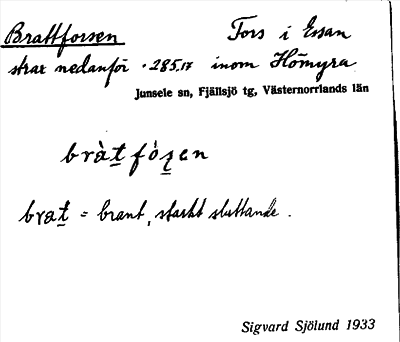 Brattforsen Fors i Essan
strax nedanför ·285,17 inom Hömyra
Junsele sn, Fjällsjö tg, Västernorrlands län
bràt̲ fó̀s̲en
brat̲ = brant, starkt sluttande.
Sigvard Sjölund 1933